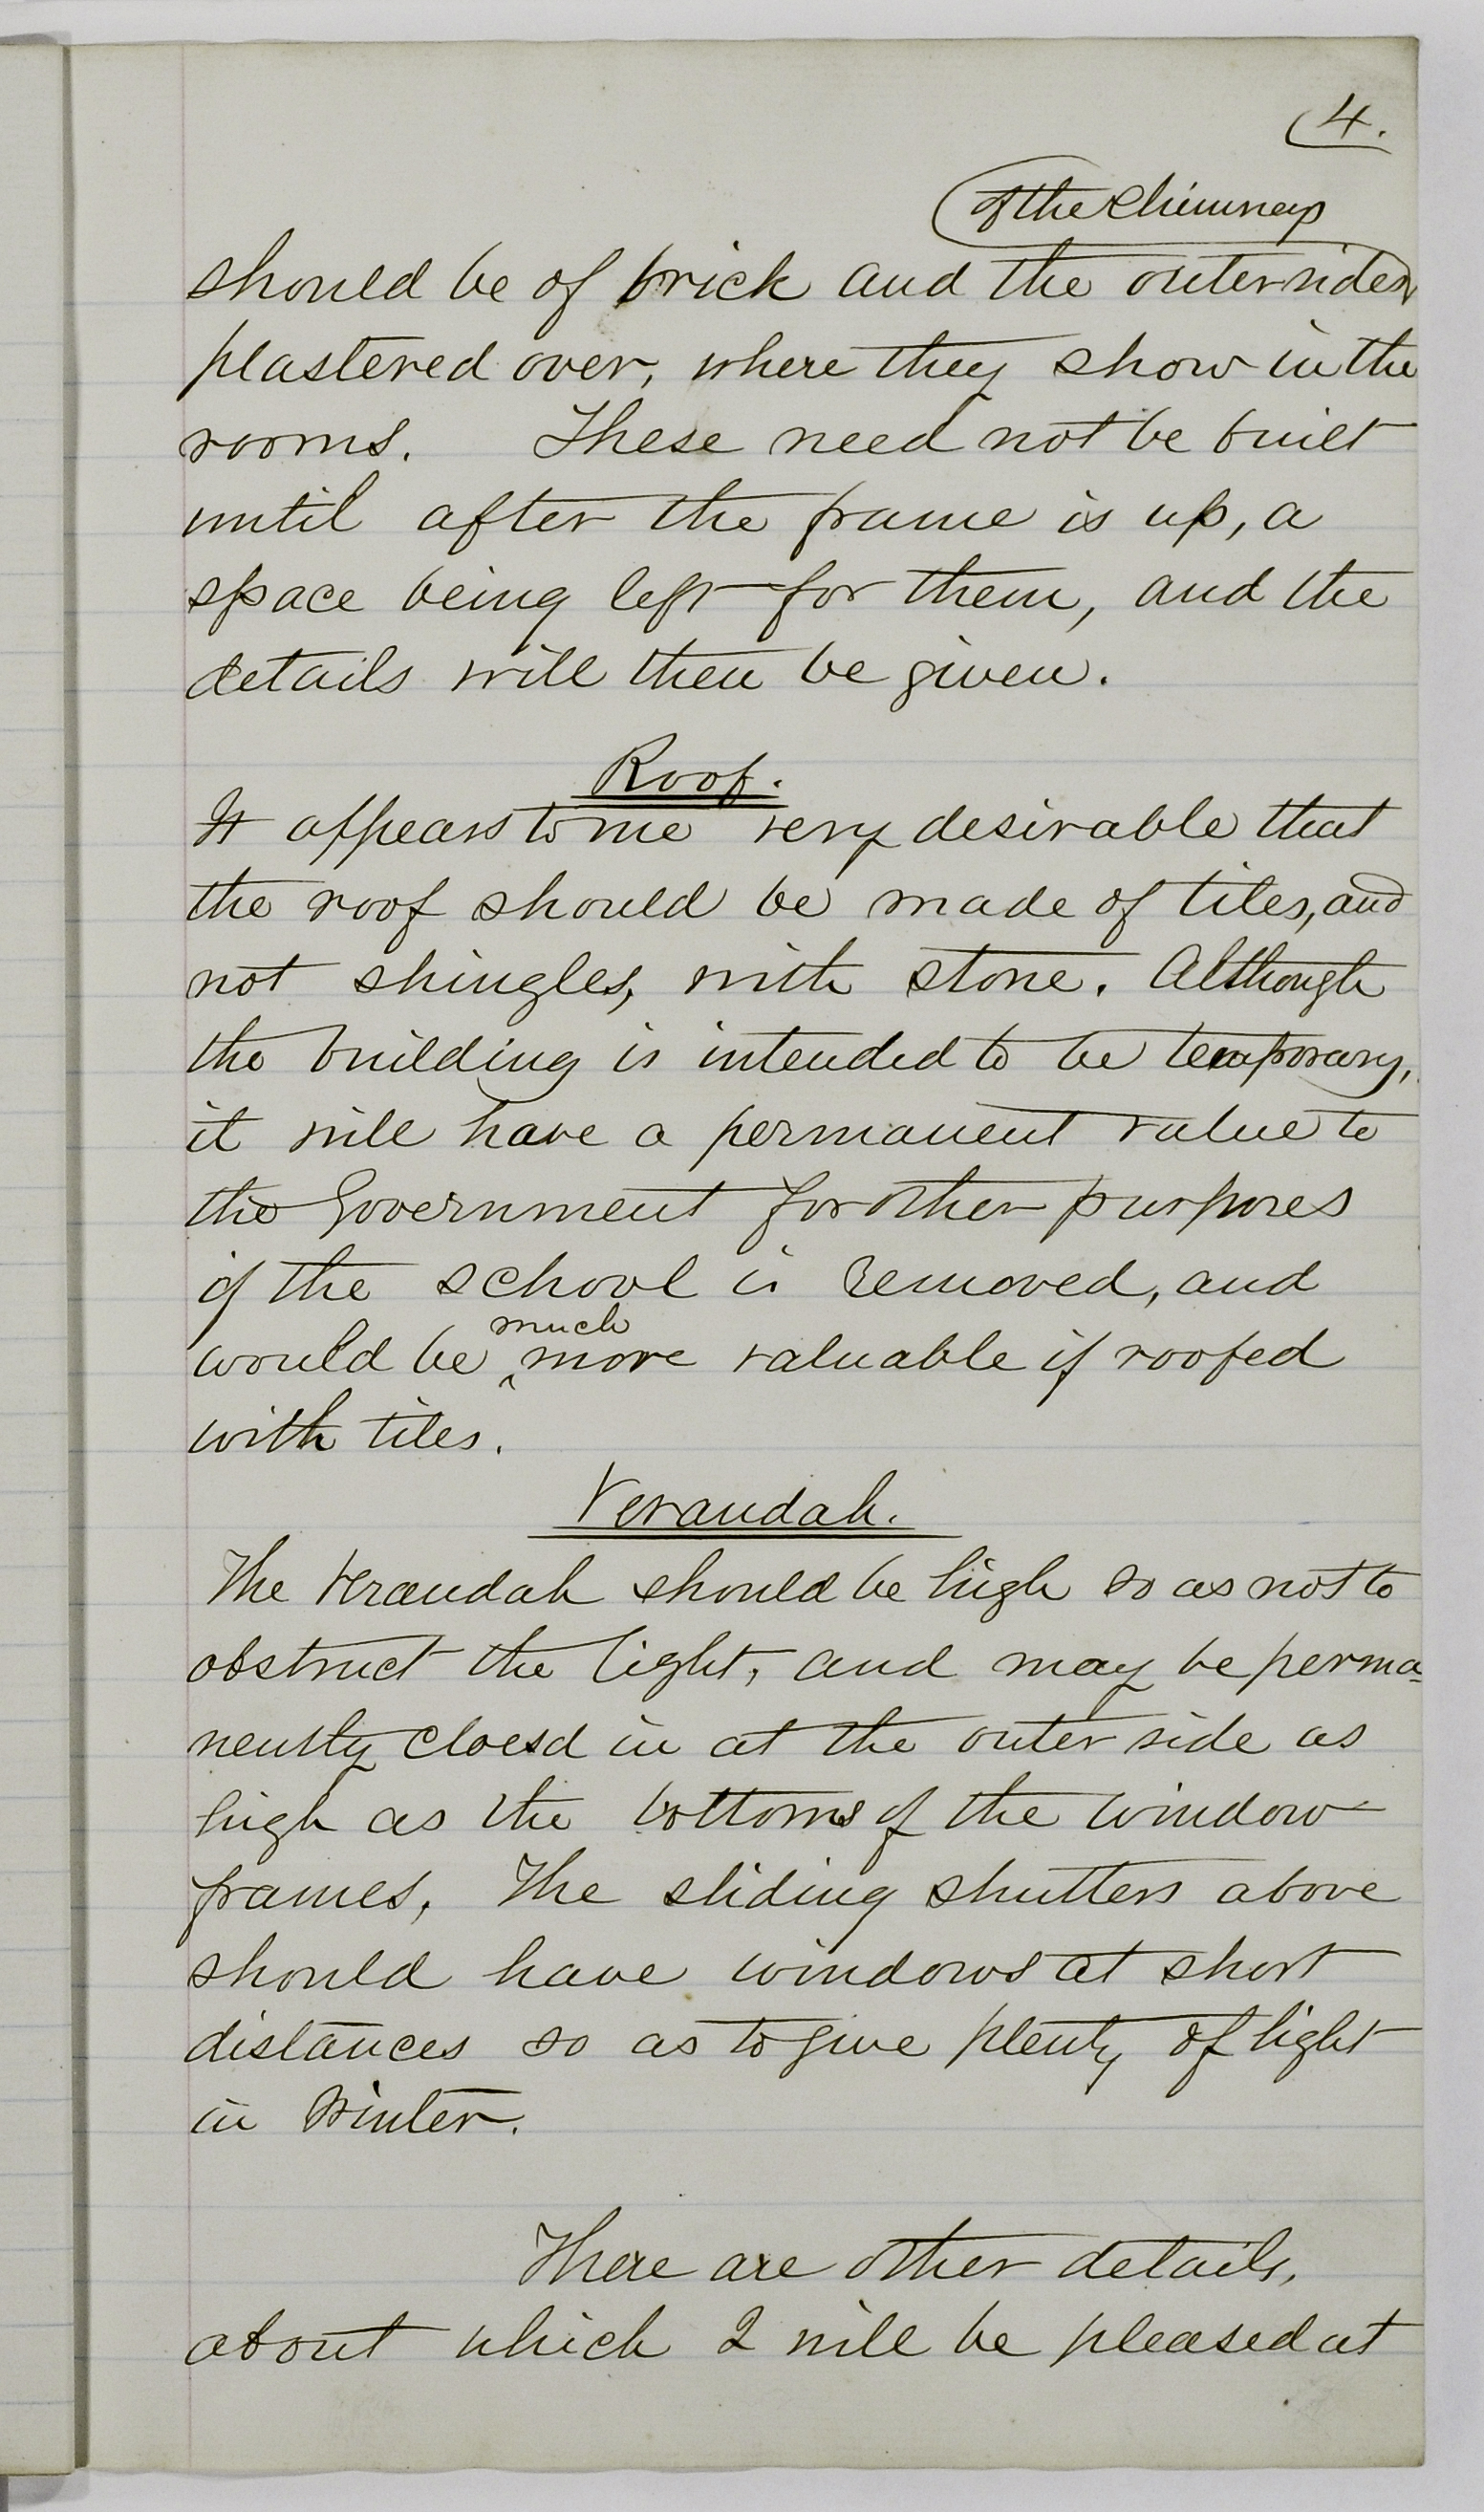 4.
of the chimneys
should be of brick and the outer sides
plastered over, where they show in the
rooms. These need not be built
until after the frame is up, a
space being left for them, and the
details will then be given.
Roof.
It appears to me very desirable that
the roof should be made of tiles, and
not shingles, with stone. Although
the building is intended to be temporary,
it will have a permanent value to
the Government for other purposes
if the school is removed, and
much
would be more valuable if roofed
with tiles.
Verandah.
The verandah should be high so as not to
obstruct the light, and may be perma-
nently cloesd in at the outer side as
high as the bottoms of the window
frames. The sliding shutters above
should have windows at short
distances so as to give plenty of light
in winter.
There are other details,
about which I will be pleased at